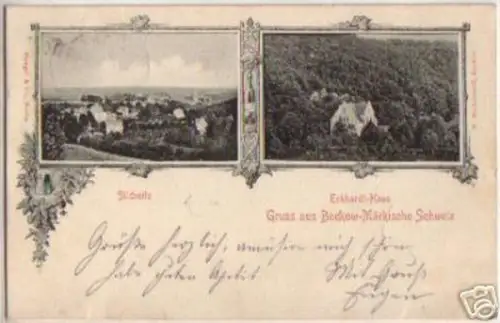 Südseite
Eckhardt-Haus
Gruss aus Buckow-Märkische Schweiz
Grüße herzlich, amüsiere mich schön
habe guten Apetit
Mit Gruß
Eugen